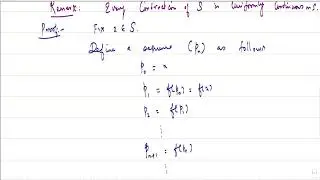 Remark: Every Contraction of S is uniformly continuous on S.
Proof:- Fix x ∈ S.
Define a sequence (Pₙ) as follows
P₀ = x
P₁ = f(P₀) = f(x)
P₂ = f(P₁)
⋮
⋮
Pₙ₊₁ = f(Pₙ)